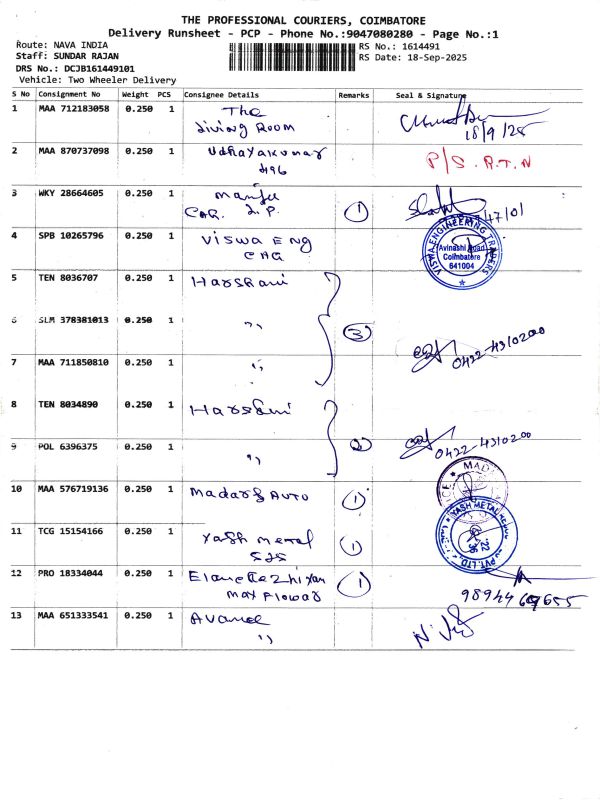 THE PROFESSIONAL COURIERS, COIMBATORE
Delivery Runsheet - PCP - Phone No.:9047080280 - Page No.:1
Route: NAVA INDIA
RS No.: 1614491
Staff: SUNDAR RAJAN
RS Date: 18-Sep-2025
DRS No.: DCJB161449101
Vehicle: Two Wheeler Delivery
S No Consignment No Weight PCS Consignee Details Remarks Seal & Signature
1 MAA 712183058 0.250 1 The
Living Room
18/9/25
2 MAA 870737098 0.250 1 Udhayakumar P/S. R.T.N
496
3 WKY 28664605 0.250 1 Manju
CAG. L.P. 1
4 SPB 10265796 0.250 1 Viswa Eng
CAG
VISWA ENGINEERING TRADERS
Avinashi Road
Coimbatore
641004
5 TEN 8036707 0.250 1 Harshani
6 SLM 378381013 0.250 1 ,, 3 0422-4310200
7 MAA 711850810 0.250 1 ,,
8 TEN 8034890 0.250 1 Harshni
9 POL 6396375 0.250 1 ,, 2 0422-4310200
10 MAA 576719136 0.250 1 Madars Auto 1
11 TCG 15154166 0.250 1 Yash Metal 1
525
YASH METAL
PVT. LTD
12 PRO 18334044 0.250 1 Elanettezhiyan 1
Max Flower
13 MAA 651333541 0.250 1 Avance
,,